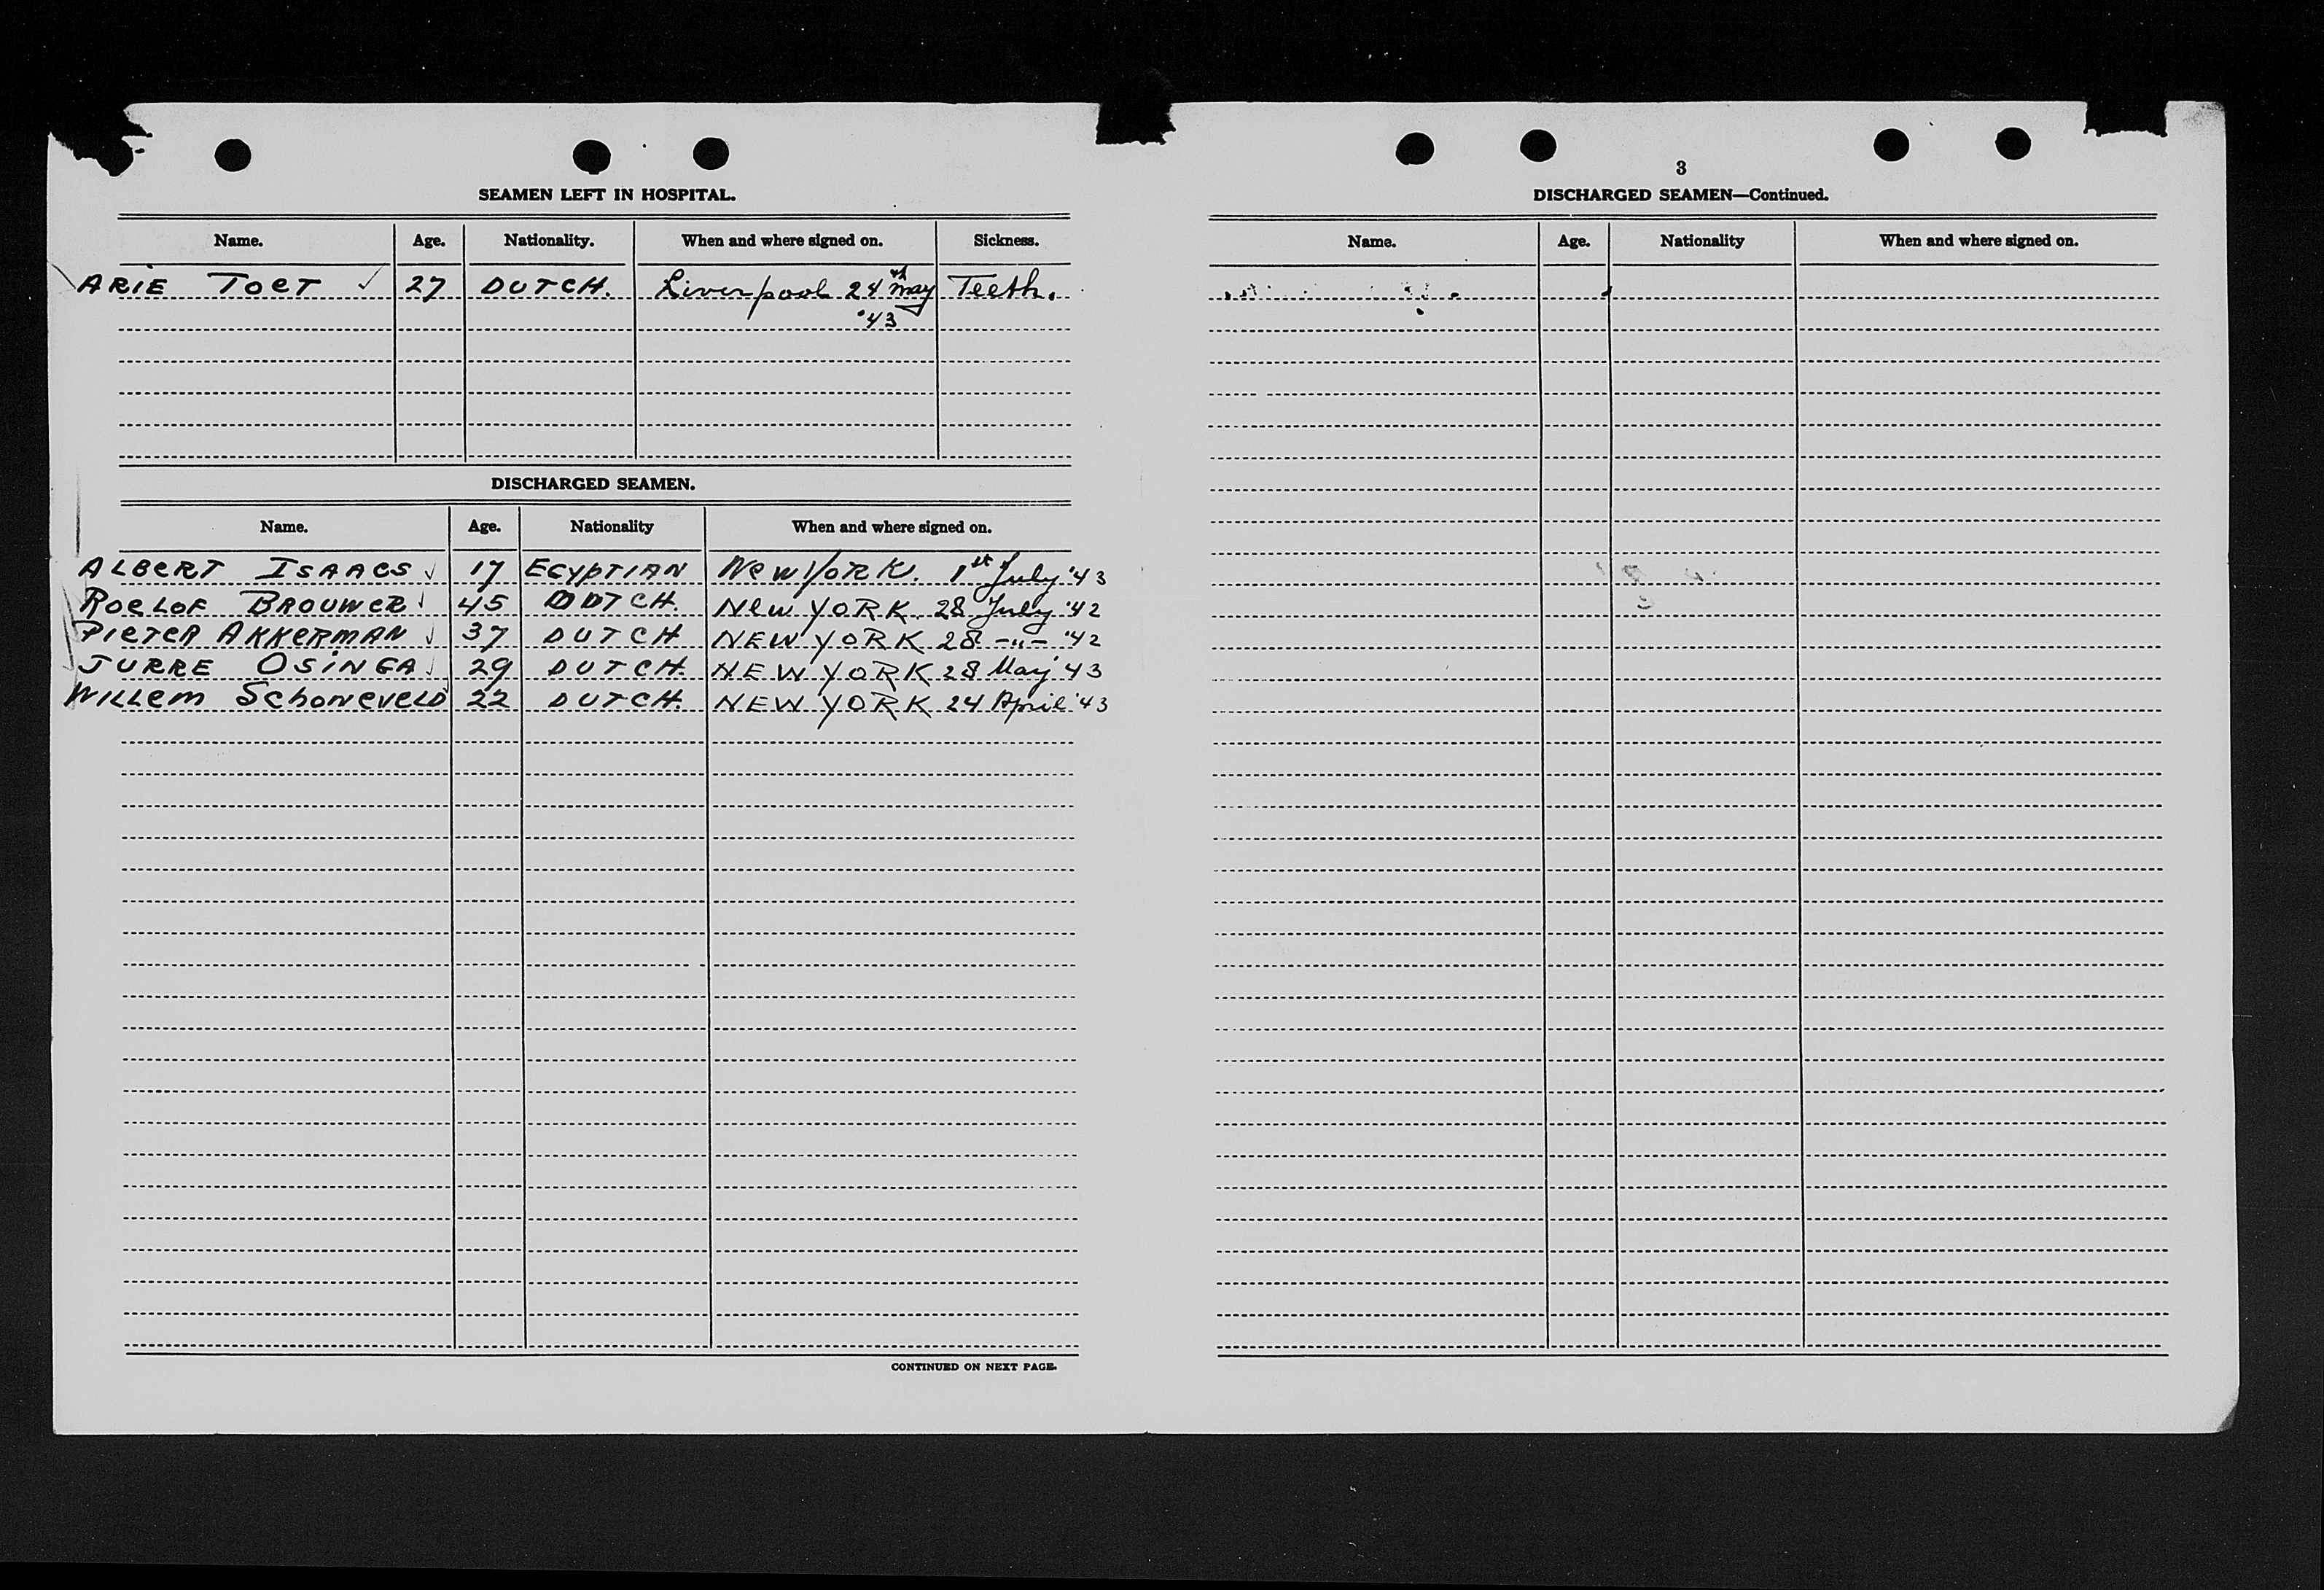 SEAMEN LEFT IN HOSPITAL.
Name. Age. Nationality. When and where signed on. Sickness.
ARIE TOET ✓ 27 DUTCH. Liverpool 24th May '43 Teeth.
DISCHARGED SEAMEN.
Name. Age. Nationality When and where signed on.
ALBERT ISAACS ✓ 17 EGYPTIAN NEW YORK. 1st July '43
ROELOF BROUWER ✓ 45 DUTCH. NEW YORK. 28 July '42
PIETER AKKERMAN ✓ 37 DUTCH NEW YORK 28 -"- '42
JURRE OSINGA ✓ 29 DUTCH. NEW YORK 28 May '43
WILLEM SCHONEVELD ✓ 22 DUTCH. NEW YORK 24 April '43
CONTINUED ON NEXT PAGE.
3
DISCHARGED SEAMEN—Continued.
Name. Age. Nationality When and where signed on.